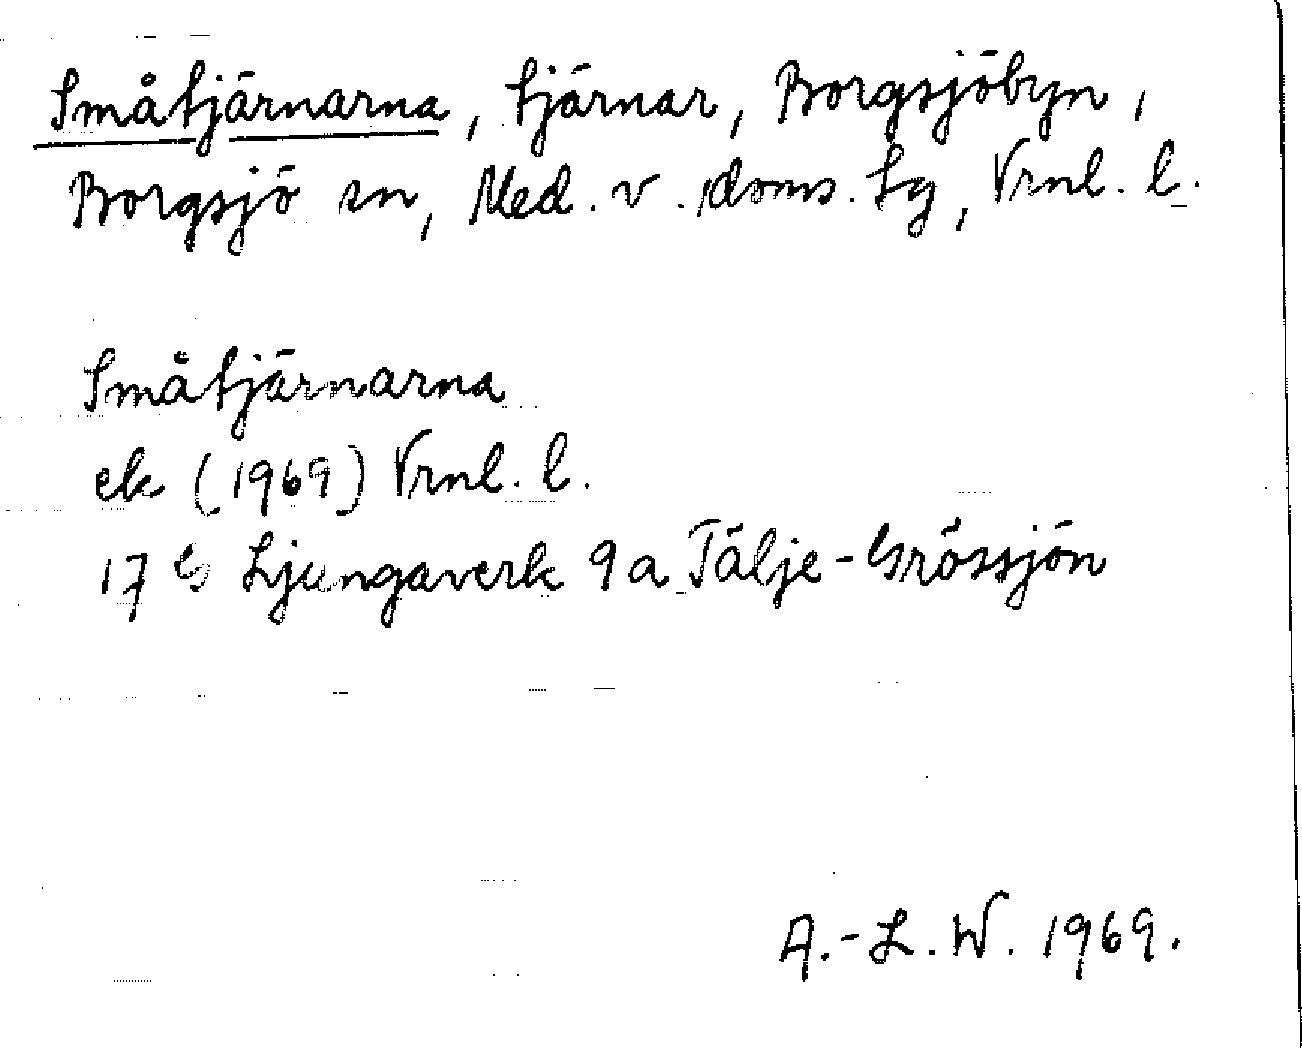 Småtjärnarna, tjärnar, Borgsjöbyn,
Borgsjö sn, Med. v. doms. tg, Vrnl. l.
Småtjärnarna
ek (1969) Vrnl. l.
17 G Ljungaverk 9a Tälje-Grössjön
A.-L. W. 1969.